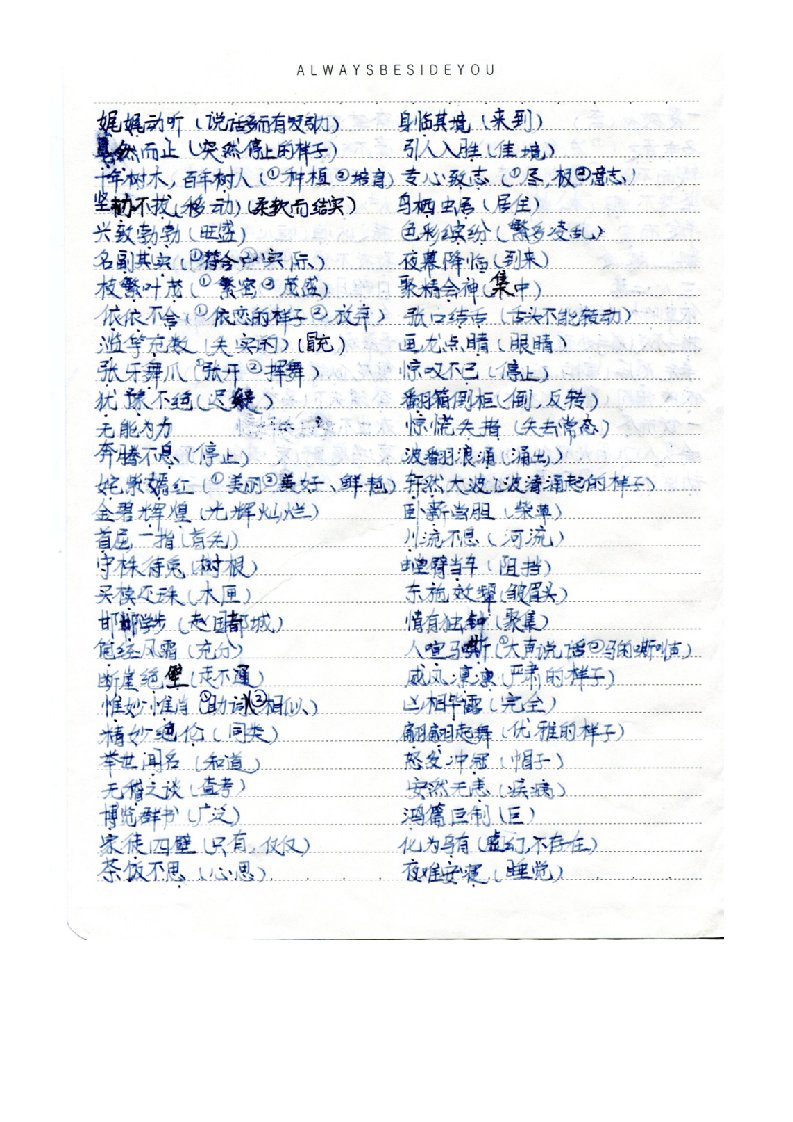 ALWAYSBESIDEYOU
娓娓动听（说话而有吸引力） 身临其境（来到）
戛然而止（突然停止的样子） 引人入胜（佳境）
十年树木，百年树人（①种植②培育） 专心致志（①尽，极②意志）
坚韧不拔（移动）（柔软而结实） 鸟栖虫居（居住）
兴致勃勃（旺盛） 色彩缤纷（繁多凌乱）
名副其实（①符合②实际） 夜幕降临（到来）
枝繁叶茂（①繁密②茂盛） 聚精会神（集中）
依依不舍（①依恋的样子②放弃） 张口结舌（舌头不能转动）
滥竽充数（失实的）（冒充） 画龙点睛（眼睛）
张牙舞爪（①张开②挥舞） 惊叹不已（停止）
犹豫不绝（迟疑） 翻箱倒柜（倒，反转）
无能为力 惊慌失措（失去常态）
奔腾不息（停止） 波翻浪涌（涌出）
姹紫嫣红（①美丽②美好、鲜艳） 轩然大波（波涛涌起的样子）
金碧辉煌（光辉灿烂） 卧薪尝胆（柴草）
首屈一指（首先） 川流不息（河流）
守株待兔（树根） 螳臂当车（阻挡）
买椟还珠（木匣） 东施效颦（皱眉头）
邯郸学步（赵国都城） 情有独钟（聚集）
饱经风霜（充分） 人喧马嘶（①大声说话②马的嘶鸣）
断崖绝壁（走不通） 威风凛凛（严肃的样子）
惟妙惟肖（①助词②相似） 凶相毕露（完全）
精妙绝伦（同类） 翩翩起舞（优雅的样子）
举世闻名（知道） 怒发冲冠（帽子）
无稽之谈（查考） 安然无恙（疾病）
博览群书（广泛） 鸿篇巨制（巨）
家徒四壁（只有，仅仅） 化为乌有（虚幻，不存在）
茶饭不思（心思） 夜难安寝（睡觉）